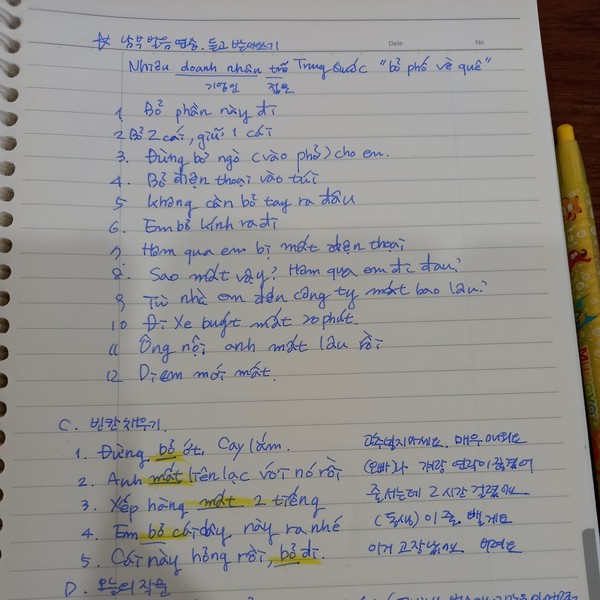 ☆ 남부 발음 연습. 듣고 받아쓰기
Date No
Nhiều doanh nhân trẻ Trung Quốc "bỏ phố về quê"
기영인 젊은
1 Bỏ phần này đi
2 Bỏ 2 cái, giữ 1 cái
3. Đừng bỏ ngò (vào phở) cho em.
4. Bỏ điện thoại vào túi
5 không cần bỏ tay ra đâu
6. Em bỏ kính ra đi
7. Hôm qua em bị mất điện thoại
8. Sao mất vậy? Hôm qua em đi đâu?
9 Từ nhà em đến công ty mất bao lâu?
10 Đi xe buýt mất 20 phút.
11 Ông nội anh mất lâu rồi
12 Dì em mới mất.
C. 빈칸 채우기.
1. Đừng bỏ ớt. Cay lắm. 고추넣지마세요. 매우 매워요
2. Anh mất liên lạc với nó rồi (오빠)나 걔랑 연락이 끊겼어
3. Xếp hàng mất 2 tiếng 줄서는데 2시간 걸렸어요
4. Em bỏ cái dây này ra nhé (동생) 이 줄 뺄게요
5. Cái này hỏng rồi, bỏ đi. 이거 고장났어요. 버려요
D. 오늘의 작문